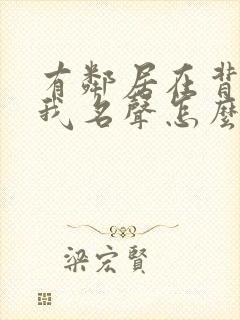 有鄰居在背
我名聲怎麼
梁宏賢